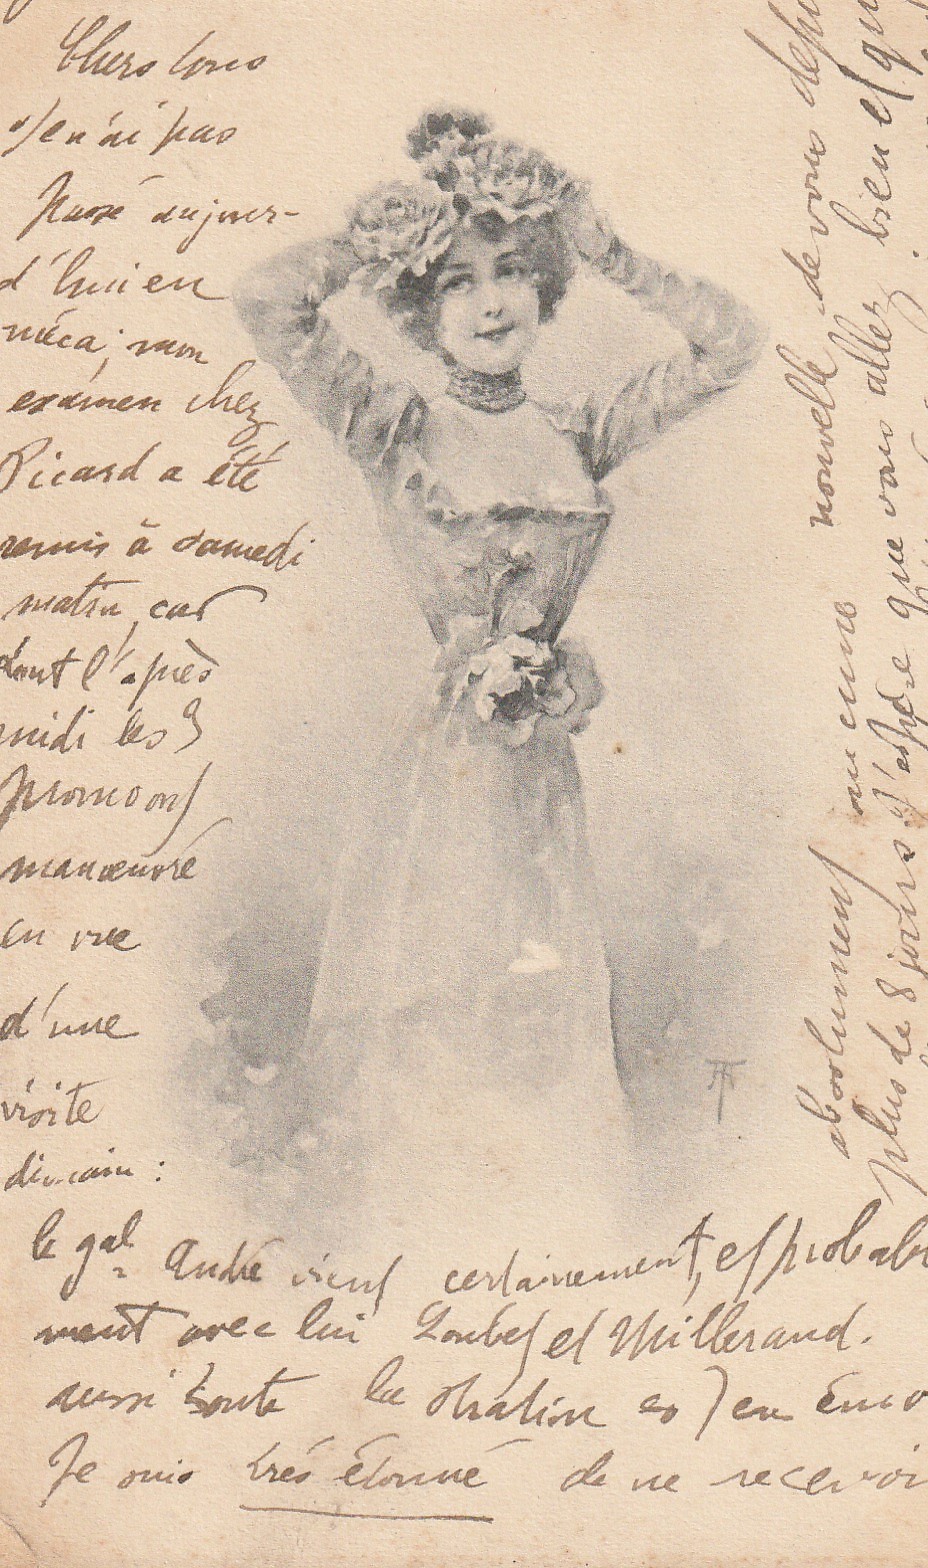 Chers tous
Je n'ai pas
passé aujour-
d'hui en
méca; mon
examen chez
Picard a été
remis à samedi
matin, car
tout l'après
midi les 3
promo ont
manœuvré
en vue
d'une
visite
demain :
le gal André vient certainement, et probable
ment avec lui Loubet et Millerand.
aussi toute la station es) en émo
Je suis très étonné de ne recevoir
absolument aucune nouvelle de vous depu
plus de 8 jours. J'espère que vous allez bien et qu